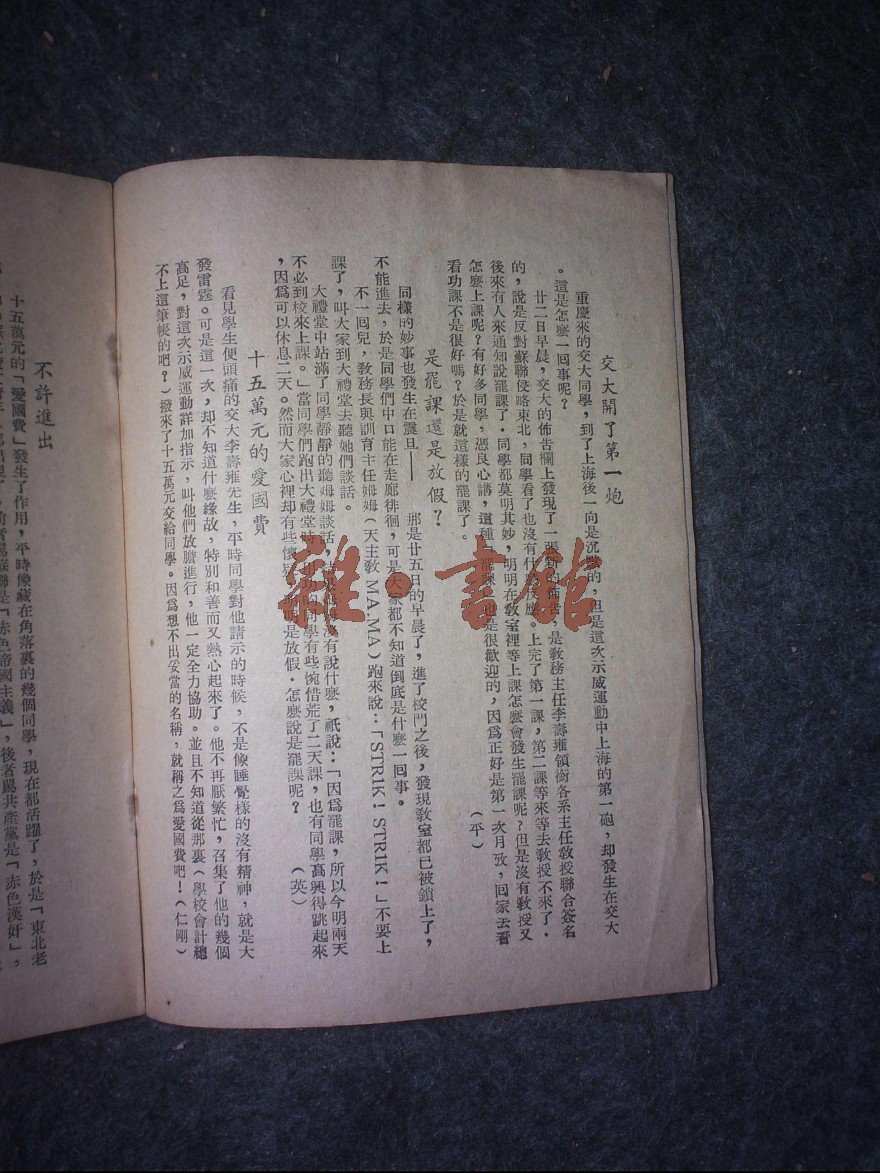 交大開了第一炮
重慶來的交大同學，到了上海後一向是沉默的，但是這次示威運動中上海的第一砲，却發生在交大
。這是怎麼一回事呢？
廿二日早晨，交大的佈告欄上發現了一張新的佈告，是敎務主任李壽雍領銜各系主任敎授聯合簽名
的，說是反對蘇聯侵略東北，同學看了也沒有什反應。上完了第一課，第二課等來等去敎授不來了．
後來有人來通知說罷課了．同學都莫明其妙，明明在敎室裡等上課怎麽會發生罷課呢？但是沒有敎授又
怎麽上課呢？有好多同學，憑良心講，這種罷課也是很歡迎的，因爲正好是第一次月攷，回家去看
看功課不是很好嗎？於是就這樣的罷課了。
（平）
是罷課還是放假？
同樣的妙事也發生在震旦——　那是廿五日的早晨了，進了校門之後，發現敎室都已被鎖上了，
不能進去，於是同學們中口能在走廊徘徊，可是大家都不知道倒底是什麼一回事。
不一囘兒，敎務長與訓育主任姆姆（天主敎MA.MA）跑來說：「STRIK！STRIK！」不要上
課了，叫大家到大禮堂去聽她們談話。
大禮堂中站滿了同學靜靜的聽姆姆談話，沒有說什麽，祇說：「因爲罷課，所以今明兩天
不必到校來上課。」當同學們跑出大禮堂時，用功的同學有些惋惜荒了二天課，也有同學高興得跳起來
，因爲可以休息二天。然而大家心裡却有些懷疑，明明是放假．怎麽說是罷課呢？
（英）
十五萬元的愛國費
看見學生便頭痛的交大李壽雍先生，平時同學對他請示的時候，不是像睡覺樣的沒有精神，就是大
發雷霆。可是這一次，却不知道什麽緣故，特別和善而又熱心起來了。他不再厭繁忙，召集了他的幾個
高足，對這次示威運動詳加指示，叫他們放膽進行，他一定全力協助。並且不知道從那裏（學校會計總
不上這筆帳的吧？）撥來了十五萬元交給同學。因爲想不出妥當的名稱，就稱之爲愛國費吧！（仁剛）
不許進出
十五萬元的「愛國費」發生了作用，平時像藏在角落裏的幾個同學，現在都活躍了，於是「東北老
蘇聯是「赤色帝國主義」，後者罵共產黨是「赤色漢奸」，
雜·書館